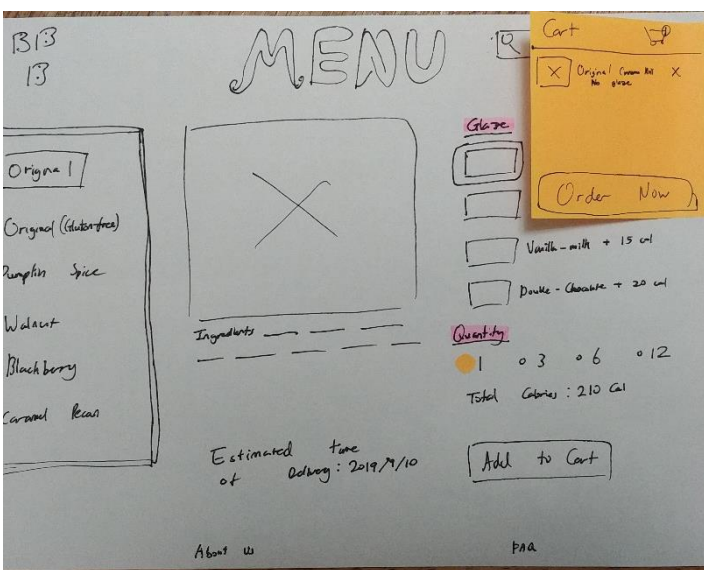 BB
B
MENU
Cart
Original
No glaze
Order Now
Original
Original (Gluten-free)
Pumpkin Spice
Walnut
Blackberry
Caramel Pecan
Ingredients
Estimated time
of : 2019/9/10
Glaze
Vanilla-milk + 15 cal
Double-Chocolate + 20 cal
Quantity
1 3 6 12
Total Calories : 210 Cal
Add to Cart
About us
FAQ